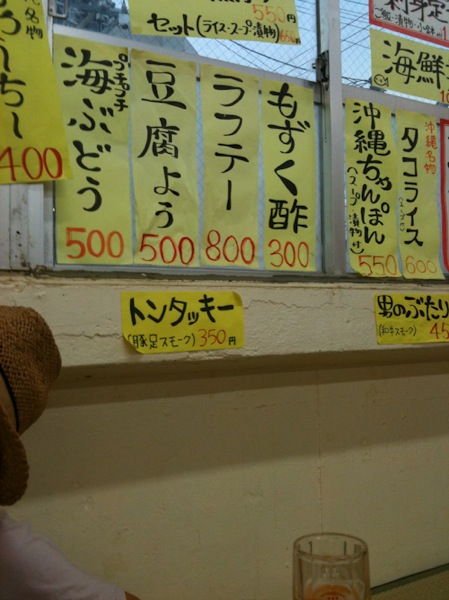 550円
セット(ライス・スープ漬物)650
海鮮
400
プチプチ
海ぶどう
500
豆腐よう
500
ラフテー
800
もずく酢
300
沖縄ちゃんぽん
(スープ・漬物付)
550
沖縄名物
タコライス
(スープ付)
600
トンタッキー
(豚足スモーク)350円
男のぶたり
(和牛スモーク)45